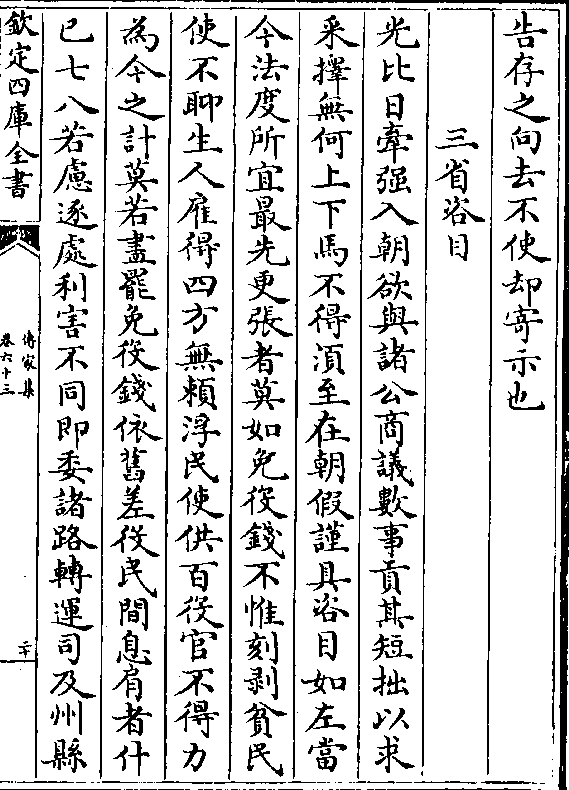 告存之向去不使却寄示也
三省咨目
光比日牽强入朝欲與諸公商議數事貢其短拙以求
采擇無何上下馬不得湏至在朝假謹具咨目如左當
今法度所宜最先更張者莫如免役錢不惟刻剥貧民
使不聊生人雇得四方無賴浮民使供百役官不得力
為今之計莫若盡罷免役錢依舊差役民間息肩者什
已七八若慮逐處利害不同即委諸路轉運司及州縣
欽定四庫全書
傳家集
卷六十三
二十